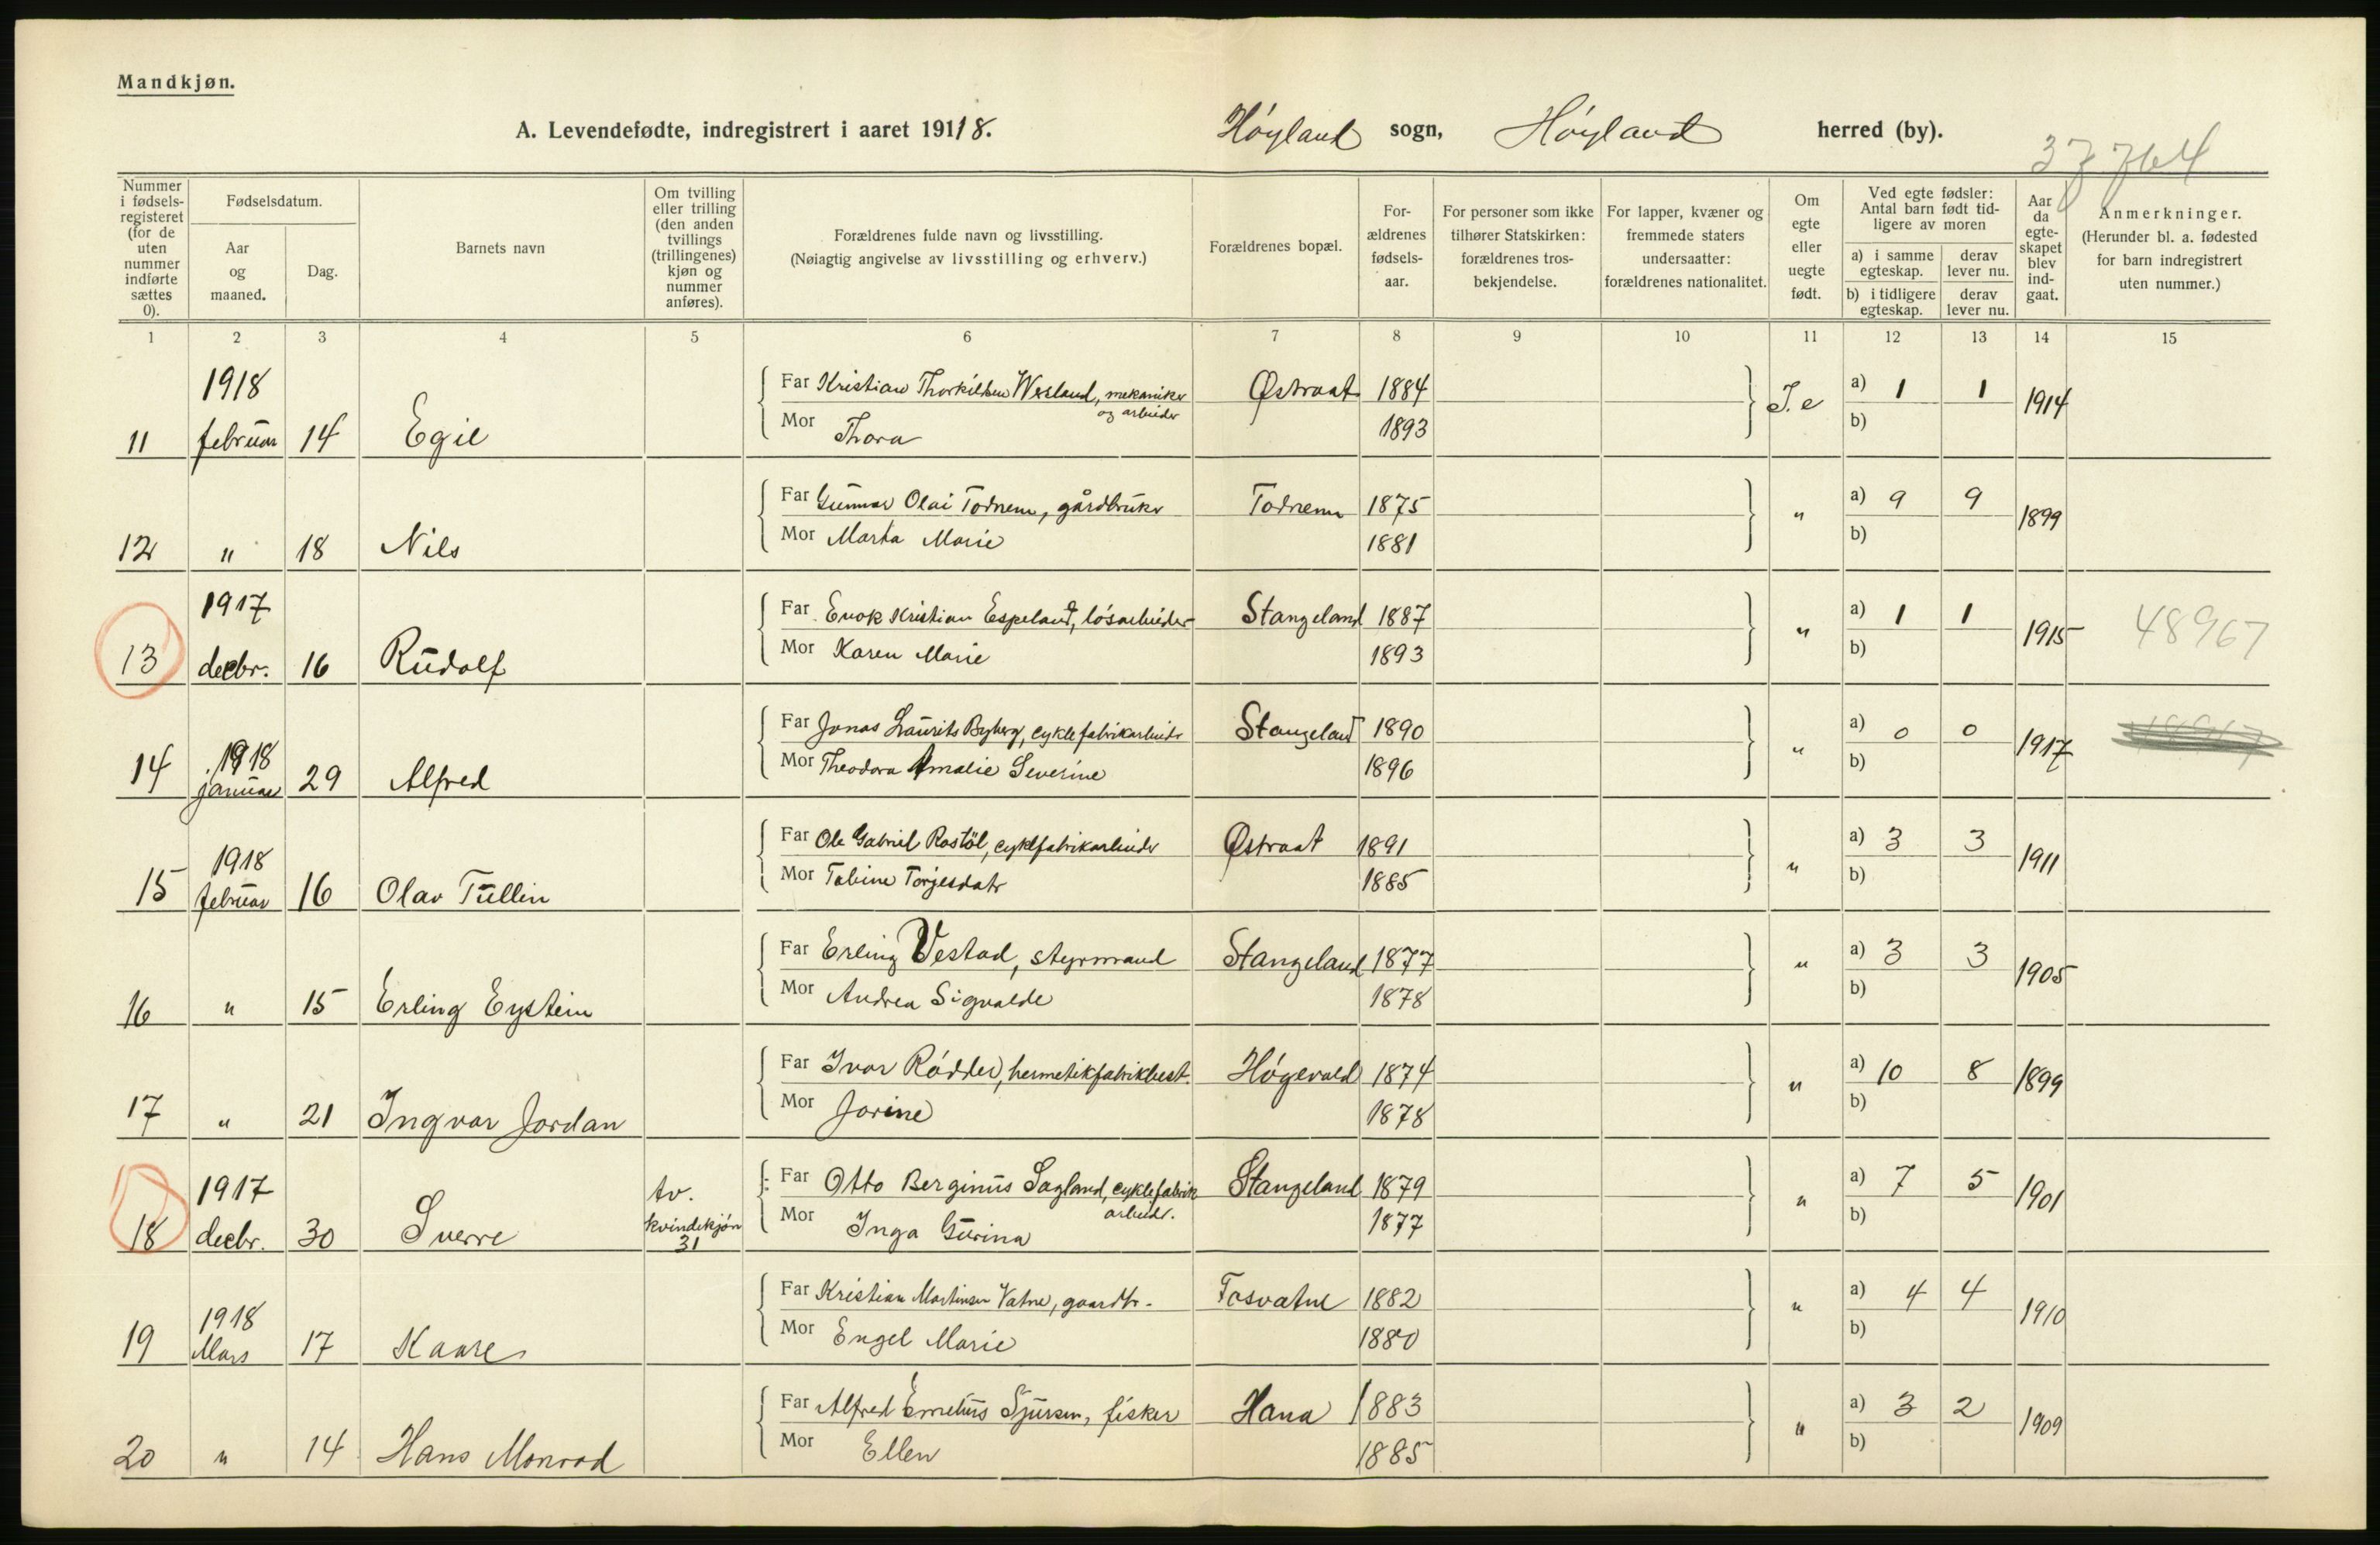 Mandkjøn.
A. Levendefødte, indregistrert i aaret 19118. Høyland sogn, Høyland herred (by).
37764
Nummer i fødselsregisteret (for de uten nummer indførte sættes 0).
Fødselsdatum.
Aar og maaned.
Dag.
Barnets navn
Om tvilling eller trilling (den anden tvillings (trillingenes) kjøn og nummer anføres).
Forældrenes fulde navn og livsstilling.
(Nøiagtig angivelse av livsstilling og erhverv.)
Forældrenes bopæl.
Forældrenes fødselsaar.
For personer som ikke tilhører Statskirken: forældrenes trosbekjendelse.
For lapper, kvæner og fremmede staters undersaatter: forældrenes nationalitet.
Om egte eller uegte født.
Ved egte fødsler: Antal barn født tidligere av moren
a) i samme egteskap. derav lever nu.
b) i tidligere egteskap. derav lever nu.
Aar da egteskapet blev indgaat.
Anmerkninger.
(Herunder bl. a. fødested for barn indregistrert uten nummer.)
1 2 3 4 5 6 7 8 9 10 11 12 13 14 15
1918
Far Kristian Thorkildsen Wesland, mekaniker og arbeider Østraat 1884 a) 1 1 1914
11 februar 14 Egil Mor Thora 1893 J.e b)
Far Gunnar Olai Todnem, gårdbruker Todnem 1875 a) 9 9 1899
12 " 18 Nils Mor Marta Marie 1881 " b)
1917
Far Enok Kristian Espeland, løsarbeider Stangeland 1887 a) 1 1 1915 48967
13 decbr. 16 Rudolf Mor Karen Marie 1893 " b)
Far Jonas Laurits Byberg, cyklefabrikarbeider Stangeland 1890 a) 0 0 1917
14 1918 januar 29 Alfred Mor Theodora Amalie Severine 1896 " b)
Far Ole Gabriel Rostöl, cyklfabrikarbeider Østraat 1891 a) 3 3 1911
15 1918 februar 16 Olav Tullin Mor Tabine Torjesdatr 1885 " b)
Far Erling Vestad, styrmand Stangeland 1877 a) 3 3 1905
16 " 15 Erling Eystein Mor Andrea Sigvalde 1878 " b)
Far Ivar Rødder, hermetikfabrikbest. Høgevold 1874 a) 10 8 1899
17 " 21 Ingvar Jordan Mor Jorine 1878 " b)
1917
Far Otto Berginus Sagland, cyklefabrik arbeidr. Stangeland 1879 a) 7 5 1901
18 decbr. 30 Sverre tv. kvindekjøn 31 Mor Inga Gurina 1877 " b)
Far Kristian Martinsen Vatne, gaardbr. Fosvatne 1882 a) 4 4 1910
19 1918 Mars 17 Kaare Mor Engel Marie 1880 " b)
Far Alfred Emelius Sjursen, fisker Hana 1883 a) 3 2 1909
20 " 14 Hans Monrad Mor Ellen 1885 " b)